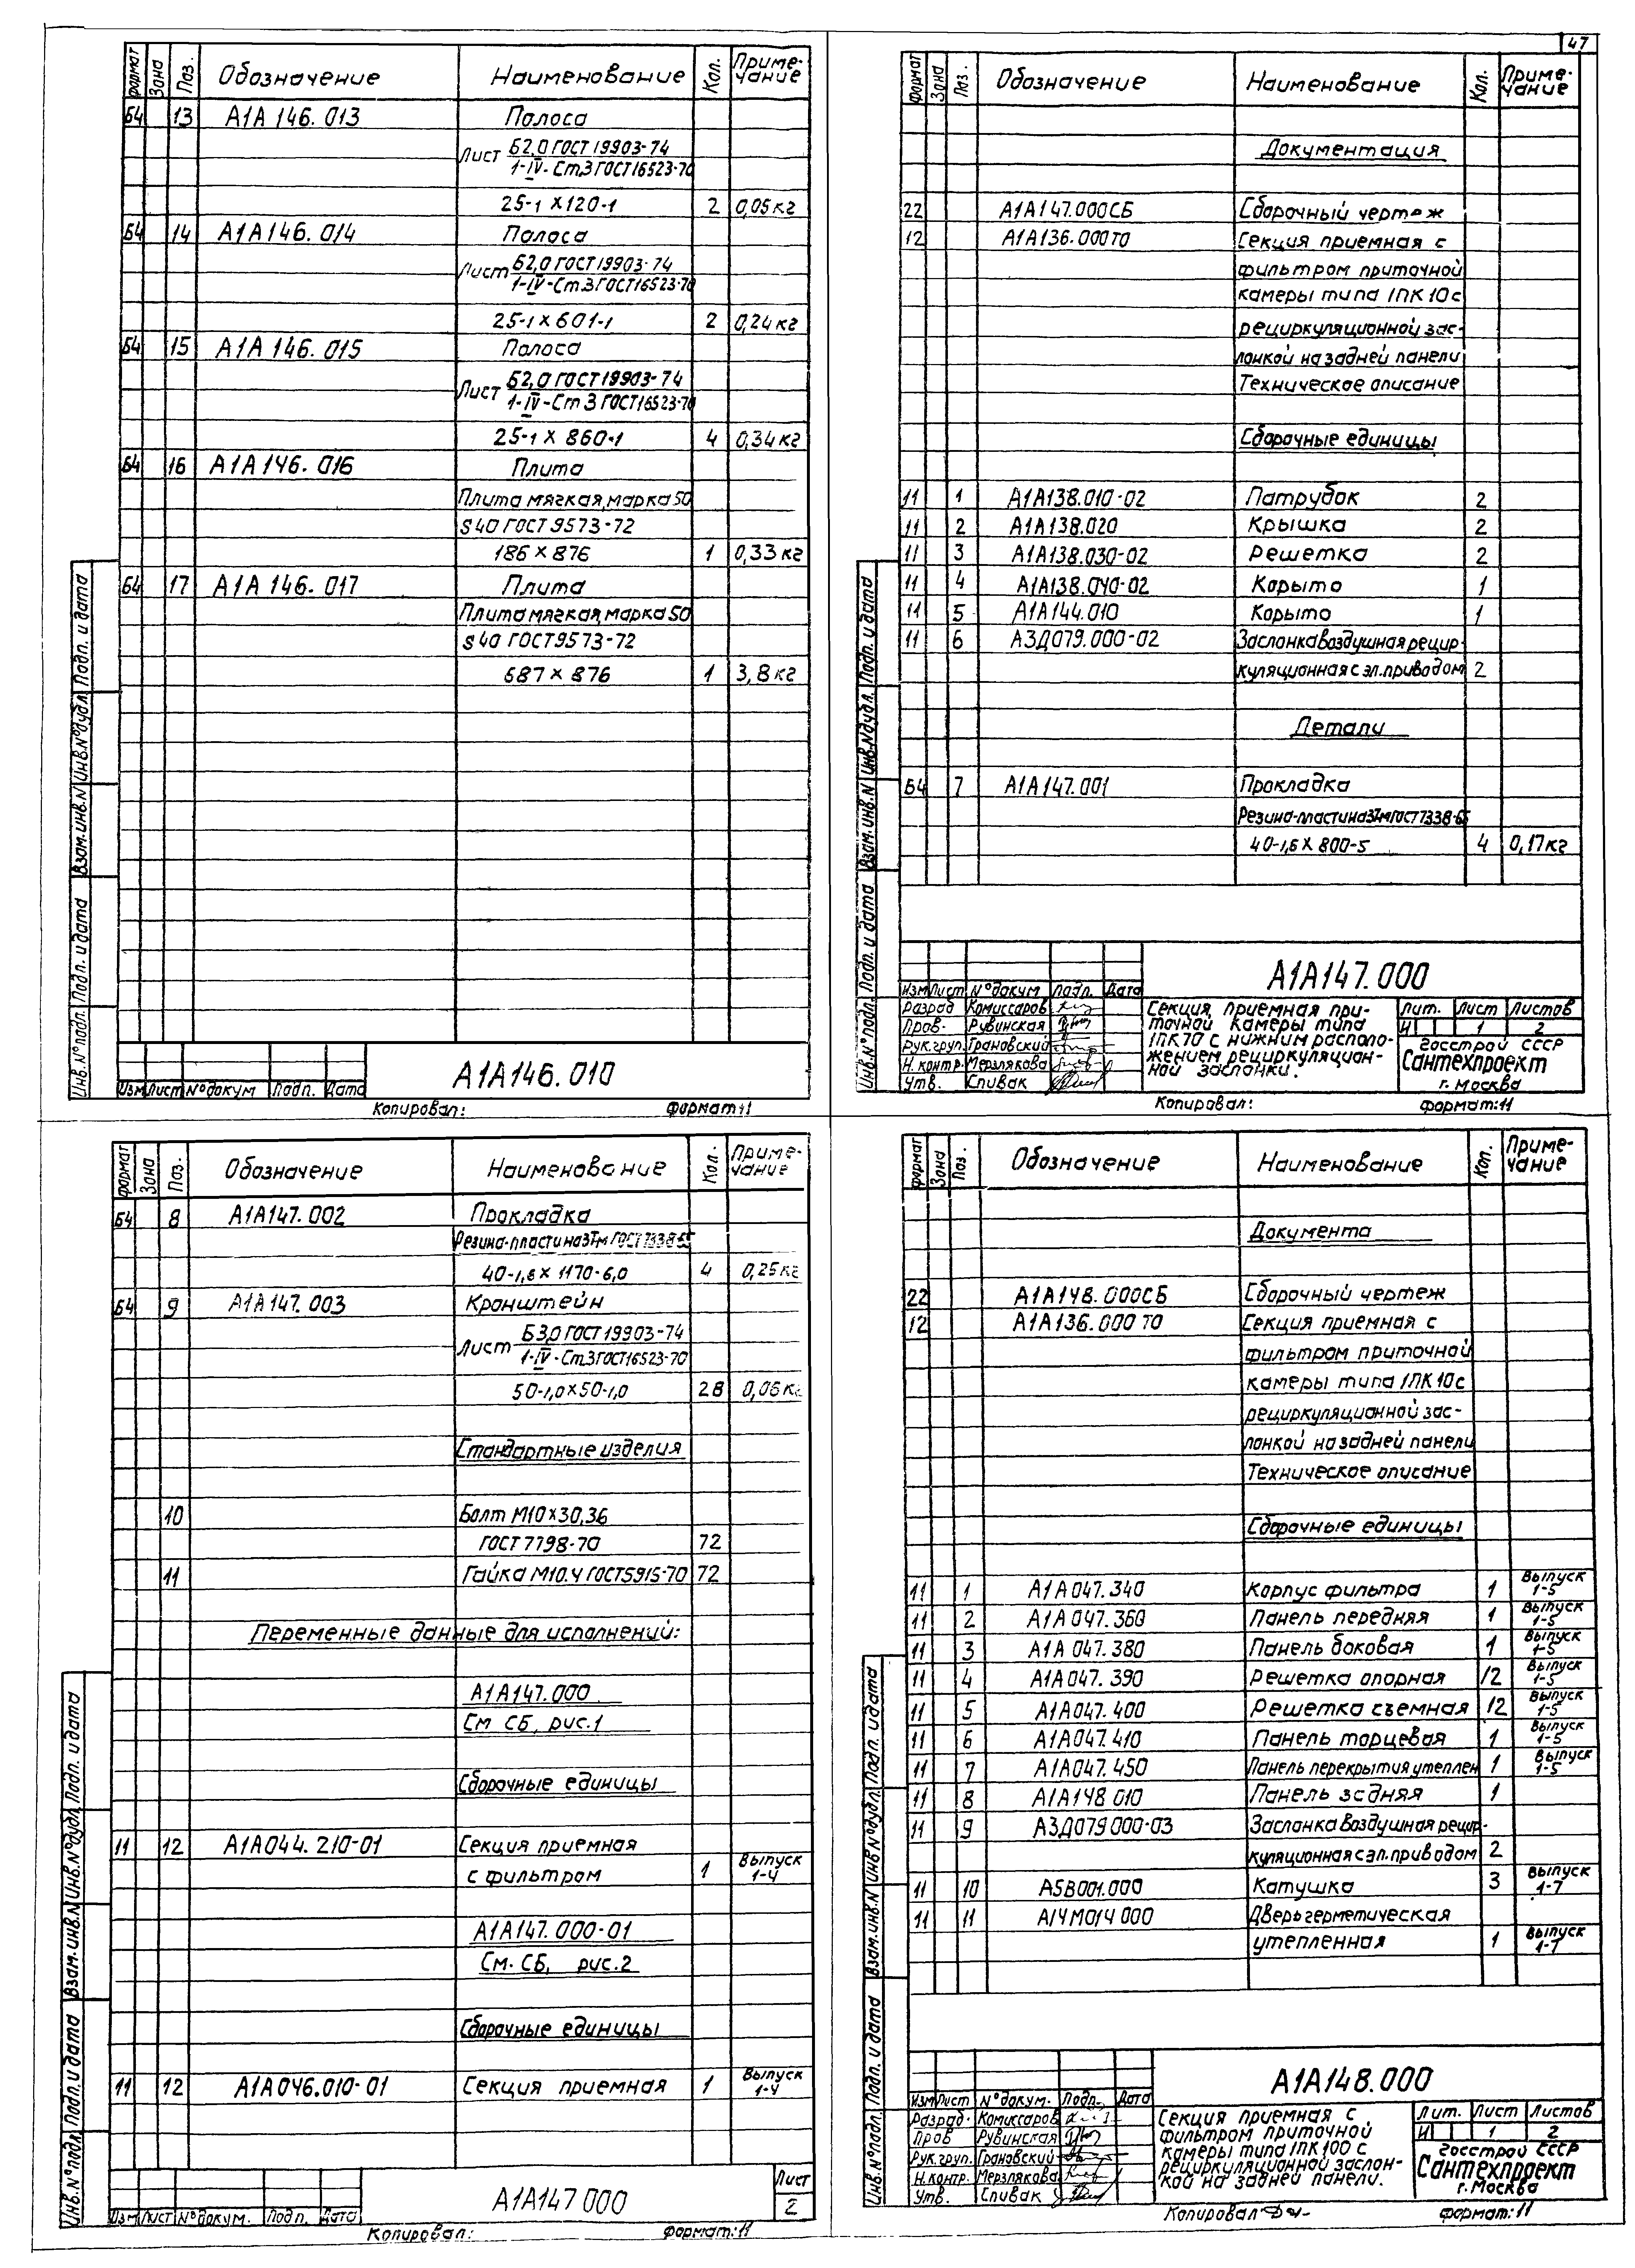 47
формат Зона Поз. Обозначение Наименование Кол. Приме-
чание
Б4 13 А1А 146.013 Полоса
Лист Б2,0 ГОСТ 19903-74
1-IV-Ст.3 ГОСТ 16523-70
25-1 × 120-1 2 0,05 кг
Б4 14 А1А 146.014 Полоса
Лист Б2,0 ГОСТ 19903-74
1-IV-Ст.3 ГОСТ 16523-70
25-1 × 601-1 2 0,24 кг
Б4 15 А1А 146.015 Полоса
Лист Б2,0 ГОСТ 19903-74
1-IV-Ст 3 ГОСТ 16523-70
25-1 × 860-1 4 0,34 кг
Б4 16 А1А 146.016 Плита
Плита мягкая, марка 50
S 40 ГОСТ 9573-72
186 × 876 1 0,33 кг
Б4 17 А1А 146.017 Плита
Плита мягкая, марка 50
S 40 ГОСТ 9573-72
687 × 876 1 3,8 кг
Инв.№ подл. Подп. и дата Взам.инв.№ Инв.№ дубл. Подп. и дата
Изм Лист № докум Подп. Дата
А1А146.010
Копировал: формат:11
формат Зона Поз. Обозначение Наименование Кол. Приме-
чание
Документация
22 А1А147.000СБ Сборочный чертеж
12 А1А136.000ТО Секция приемная с
фильтром приточной
камеры типа 1ПК10 с
рециркуляционной зас-
лонкой на задней панели
Техническое описание
Сборочные единицы
11 1 А1А138.010-02 Патрубок 2
11 2 А1А138.020 Крышка 2
11 3 А1А138.030-02 Решетка 2
11 4 А1А138.040-02 Корыто 1
11 5 А1А144.010 Корыто 1
11 6 А3Д079.000-02 Заслонка воздушная рецир-
куляционная с эл.приводом 2
Детали
Б4 7 А1А147.001 Прокладка
Резина-пластина 3Тм ГОСТ 7338-65
40-1,6 × 800-5 4 0,17 кг
Инв.№ подл. Подп. и дата Взам.инв.№ Инв.№ дубл. Подп. и дата
А1А147.000
Изм Лист № докум Подп. Дата
Разраб Комиссаров
Пров. Рувинская
Рук.груп. Грановский
Н.контр. Мерзлякова
Утв. Спивак
Секция приемная при-
точной камеры типа
1ПК10 с нижним располо-
жением рециркуляцион-
ной заслонки.
Лит. Лист Листов
И 1 2
Госстрой СССР
Сантехпроект
г. Москва
Копировал: формат:11
формат Зона Поз. Обозначение Наименование Кол. Приме-
чание
Б4 8 А1А147.002 Прокладка
Резина-пластина 3Тм ГОСТ 7338-65
40-1,6 × 1170-6,0 4 0,25 кг
Б4 9 А1А147.003 Кронштейн
Лист Б3,0 ГОСТ 19903-74
1-IV-Ст.3 ГОСТ 16523-70
50-1,0 × 50-1,0 28 0,06 кг
Стандартные изделия
10 Болт М10×30,36
ГОСТ 7798-70 72
11 Гайка М10.4 ГОСТ 5915-70 72
Переменные данные для исполнений:
А1А147.000
См СБ, рис.1
Сборочные единицы
11 12 А1А044.210-01 Секция приемная
с фильтром 1 Выпуск
1-4
А1А147.000-01
См. СБ, рис.2
Сборочные единицы
11 12 А1А046.010-01 Секция приемная 1 Выпуск
1-4
Инв.№ подл. Подп. и дата Взам.инв.№ Инв.№ дубл. Подп. и дата
Изм Лист № докум. Подп. Дата
А1А147 000
Лист
2
Копировал: формат:11
формат Зона Поз. Обозначение Наименование Кол. Приме-
чание
Документа
22 А1А148.000СБ Сборочный чертеж
12 А1А136.000 ТО Секция приемная с
фильтром приточной
камеры типа 1ПК10 с
рециркуляционной зас-
лонкой на задней панели
Техническое описание
Сборочные единицы
11 1 А1А 047.340 Корпус фильтра 1 Выпуск
1-5
11 2 А1А 047.360 Панель передняя 1 Выпуск
1-5
11 3 А1А 047.380 Панель боковая 1 Выпуск
1-5
11 4 А1А 047.390 Решетка опорная 12 Выпуск
1-5
11 5 А1А 047.400 Решетка съемная 12 Выпуск
1-5
11 6 А1А047.410 Панель торцевая 1 Выпуск
1-5
11 7 А1А047.450 Панель перекрытия утеплен 1 Выпуск
1-5
11 8 А1А148 010 Панель задняя 1
11 9 А3Д079 000-03 Заслонка воздушная рецир-
куляционная с эл.приводом 2
11 10 А5В001.000 Катушка 3 Выпуск
1-7
11 11 А14М014 000 Дверь герметическая
утепленная 1 Выпуск
1-7
Инв.№ подл. Подп. и дата Взам.инв.№ Инв.№ дубл. Подп. и дата
А1А148.000
Изм Лист № докум. Подп. Дата
Разраб. Комиссаров
Пров Рувинская
Рук.груп. Грановский
Н.контр. Мерзлякова
Утв. Спивак
Секция приемная с
фильтром приточной
камеры типа 1ПК100 с
рециркуляционной заслон-
кой на задней панели.
Лит. Лист Листов
И 1 2
Госстрой СССР
Сантехпроект
г. Москва
Копировал формат:11